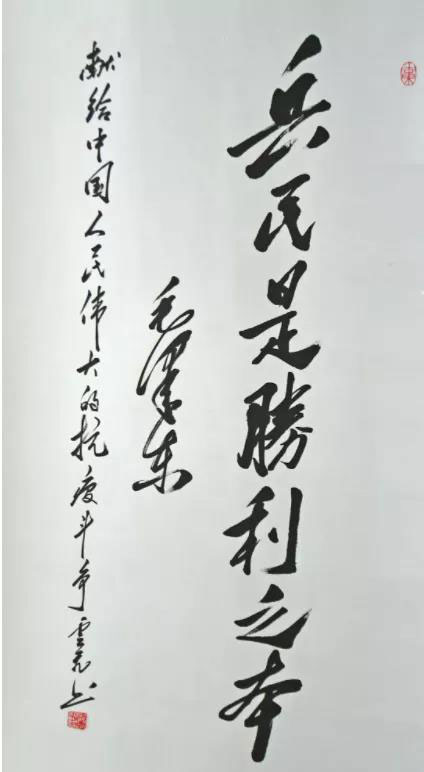 兵民是勝利之本
毛澤东
献给中国人民伟大的抗疫斗争